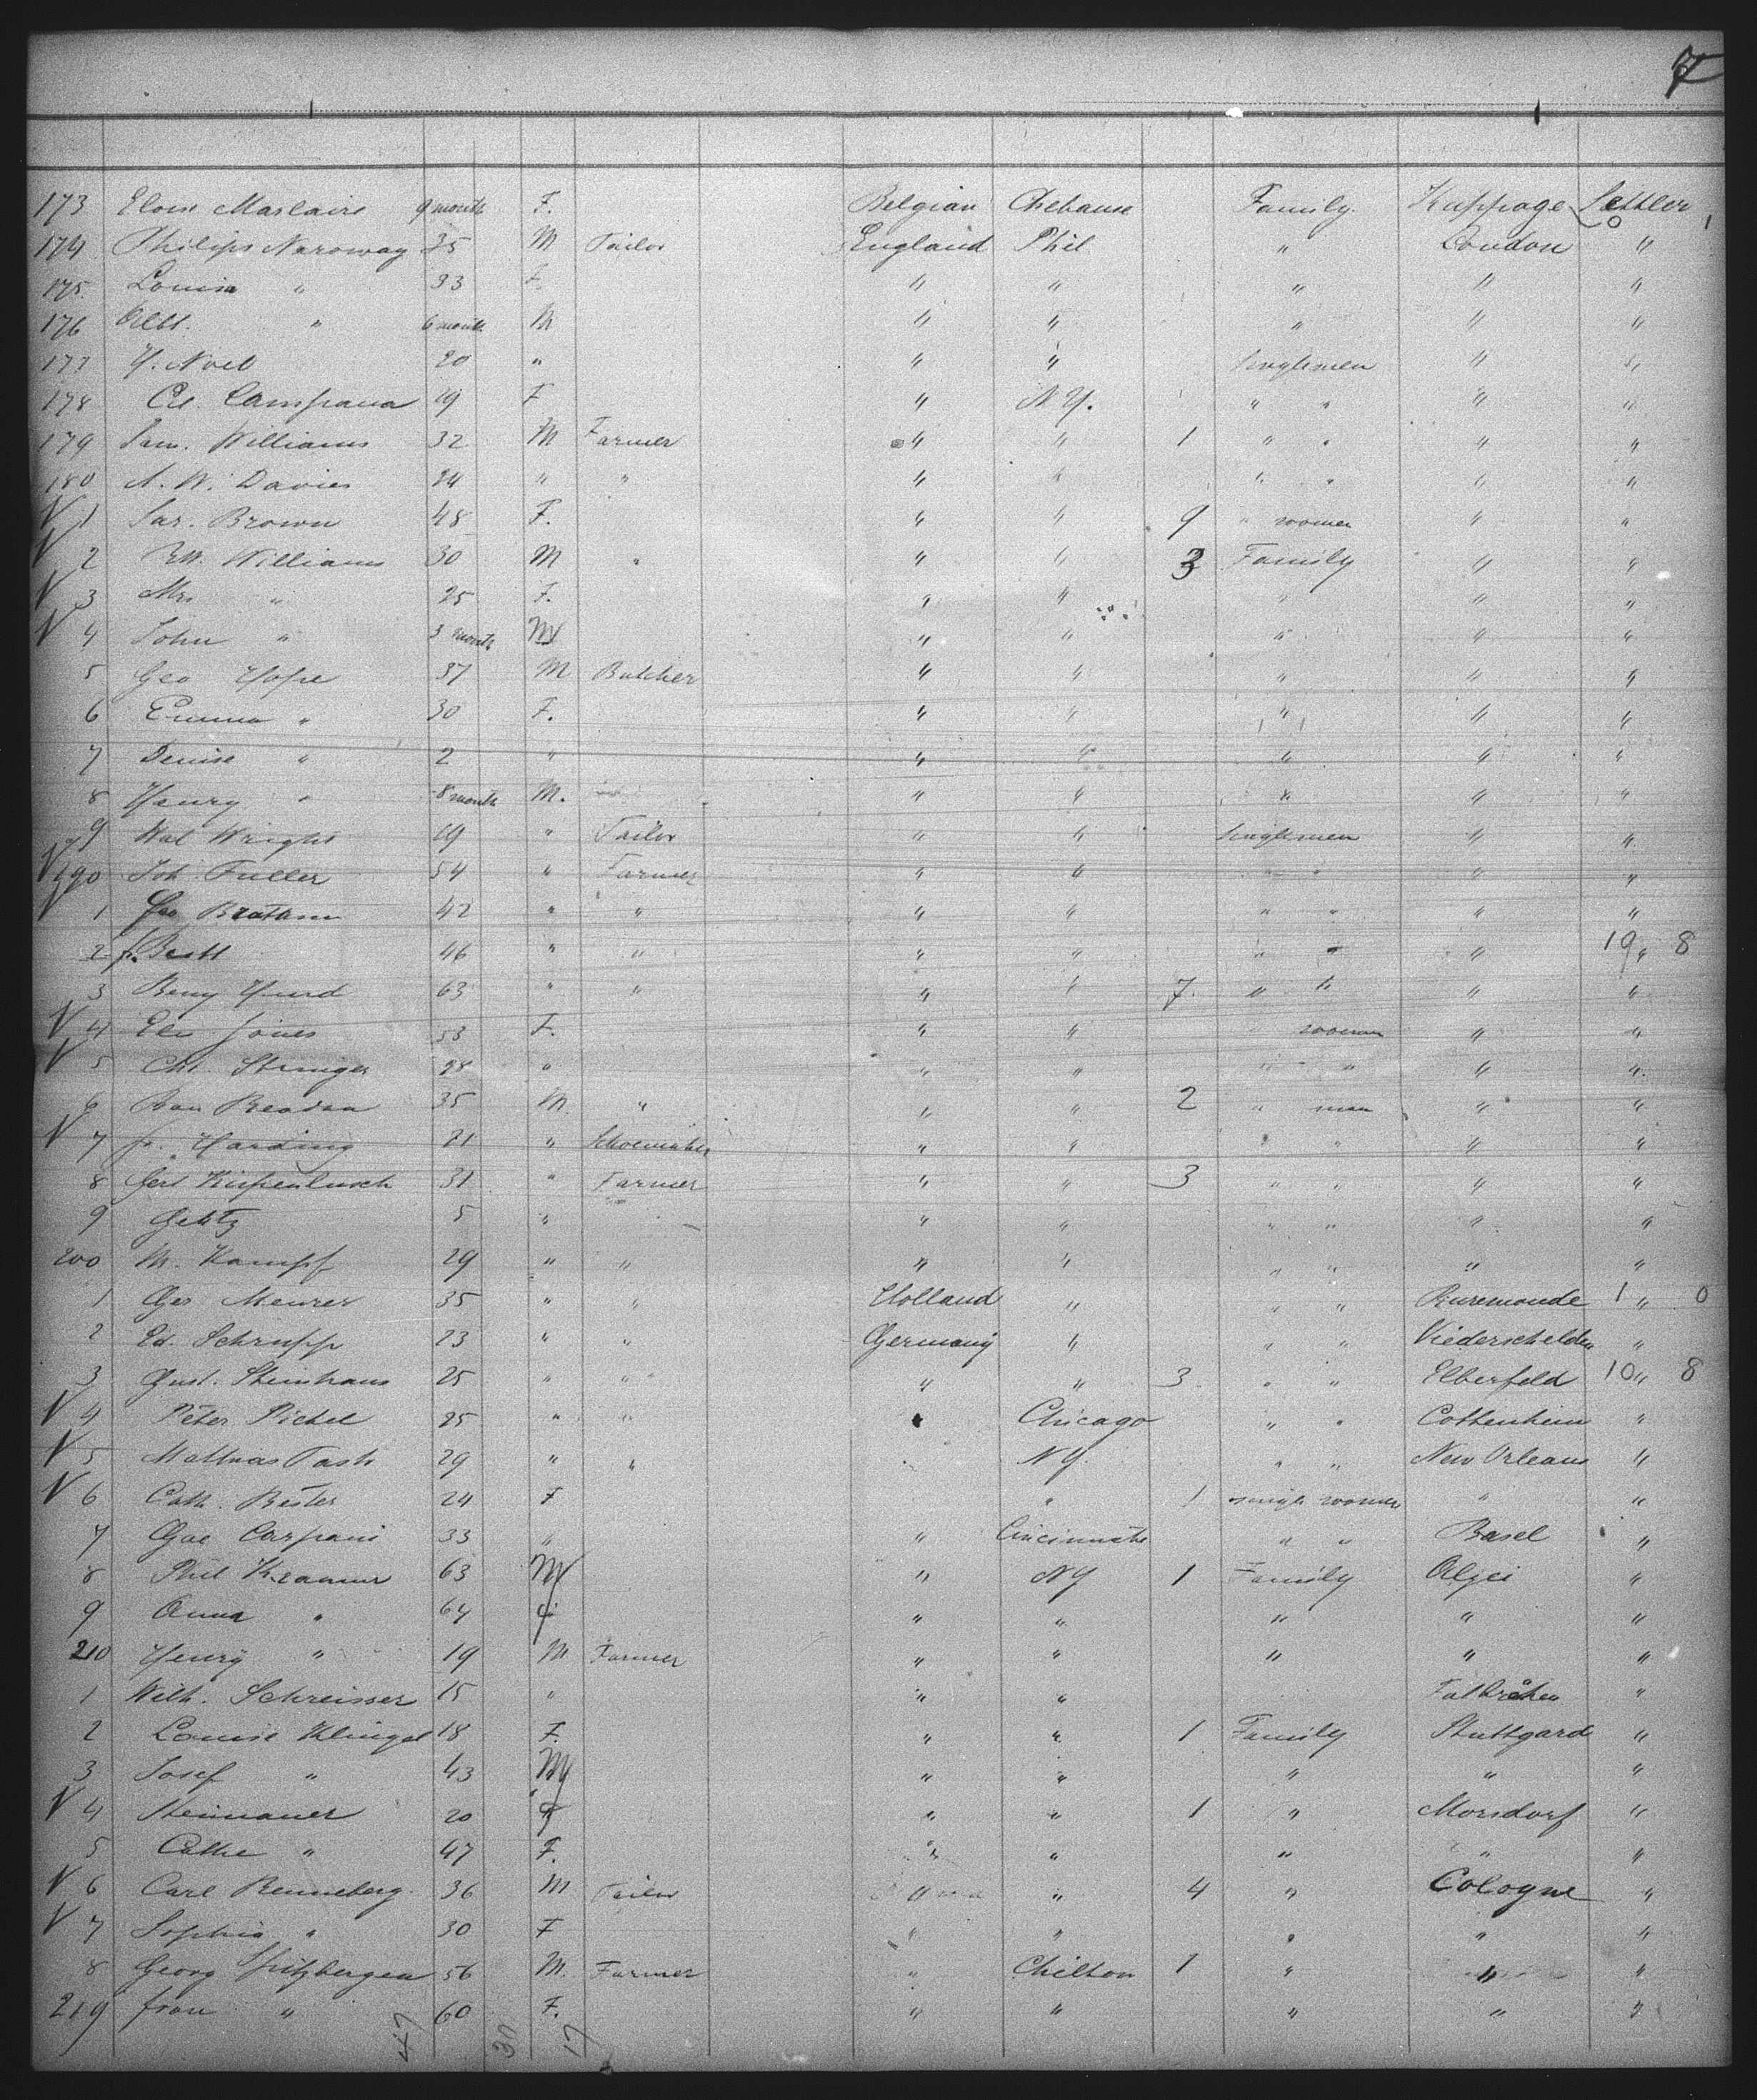 7
173 Eloise Maslaire 9 month F. Belgian Chebanse Family Kuppage Settler
174 Philips Naroway 35 M Tailor England Phil " London "
175 Louisa " 33 F. " " " " "
176 Albt. " 6 month M " " " " "
177 H. Noel 20 " " " Singlemen " "
178 Campana 19 F " N.Y. " " " "
179 Sam. Williams 32 M Farmer " " 1 " " " "
180 A. W. Davies 24 " " " " " " " "
V 1 Sar. Brown 48 F. " " 9 " women " "
V 2 Williams 30 M " " " 3 Family " "
V 3 Mrs " 25 F. " " " " "
V 4 John " 3 month M " " " " "
5 Geo Hope 37 M Butcher " " " " "
6 Emma " 30 F. " " " " "
7 Denise " 2 " " " " " "
8 Henry " 8 month M. " " " " "
9 Wal Wright 19 " Tailor " " Singlemen " "
V 190 Joh. Fuller 54 " Farmer " " " " " "
V 1 42 " " " " " " " "
2 46 " " " " " " " 19 " 8
3 Benj Hurd 63 " " " " 7. " " " "
V 4 Jones 53 F. " " women " "
V 5 Stringer 28 " " " " " " "
6 35 M. " " " 2 " man " "
V 7 Harding 21 " Schoemaker " " " " " "
8 Gert 31 " Farmer " " 3 " " " "
9 5 " " " " " " "
200 M. Kampf 29 " " " " " " " "
1 Ger Meurer 35 " " Holland " " " Ruremonde 1 " 0
2 Ed. Schrupp 23 " " Germany " " " Niederschelden "
3 Gust. Steinhaus 25 " " " " 3 " " Elberfeld 10 " 8
V 4 Peter Pichel 25 " " " Chicago " " Cottenheim "
V 5 Mathias 29 " " N.Y. " " New Orleans "
V 6 Cath. Bester 24 F " 1 single women " "
7 33 " " Cincinnati " " Basel "
8 Phil Kramer 63 M " NY 1 Family Alzei "
9 Anna " 64 f " " " " "
210 Henry " 19 M Farmer " " " " "
1 Wilh. Schreisser 15 " " " "
2 Louise Klingel 18 F. " " 1 Family Stuttgard "
3 Josef " 43 M " " " " "
V 4 Steinauer 20 " " 1 " Morsdorf "
5 Cathe " 47 F. " " " " "
V 6 Carl Benneberg 36 M Tailor " " 4 " Cologne "
V 7 Sophia " 30 F " " " " "
8 Georg Spitzbergen 56 M. Farmer " Chilton 1 " " "
219 frau " 60 F. " " " " "
47 30 17